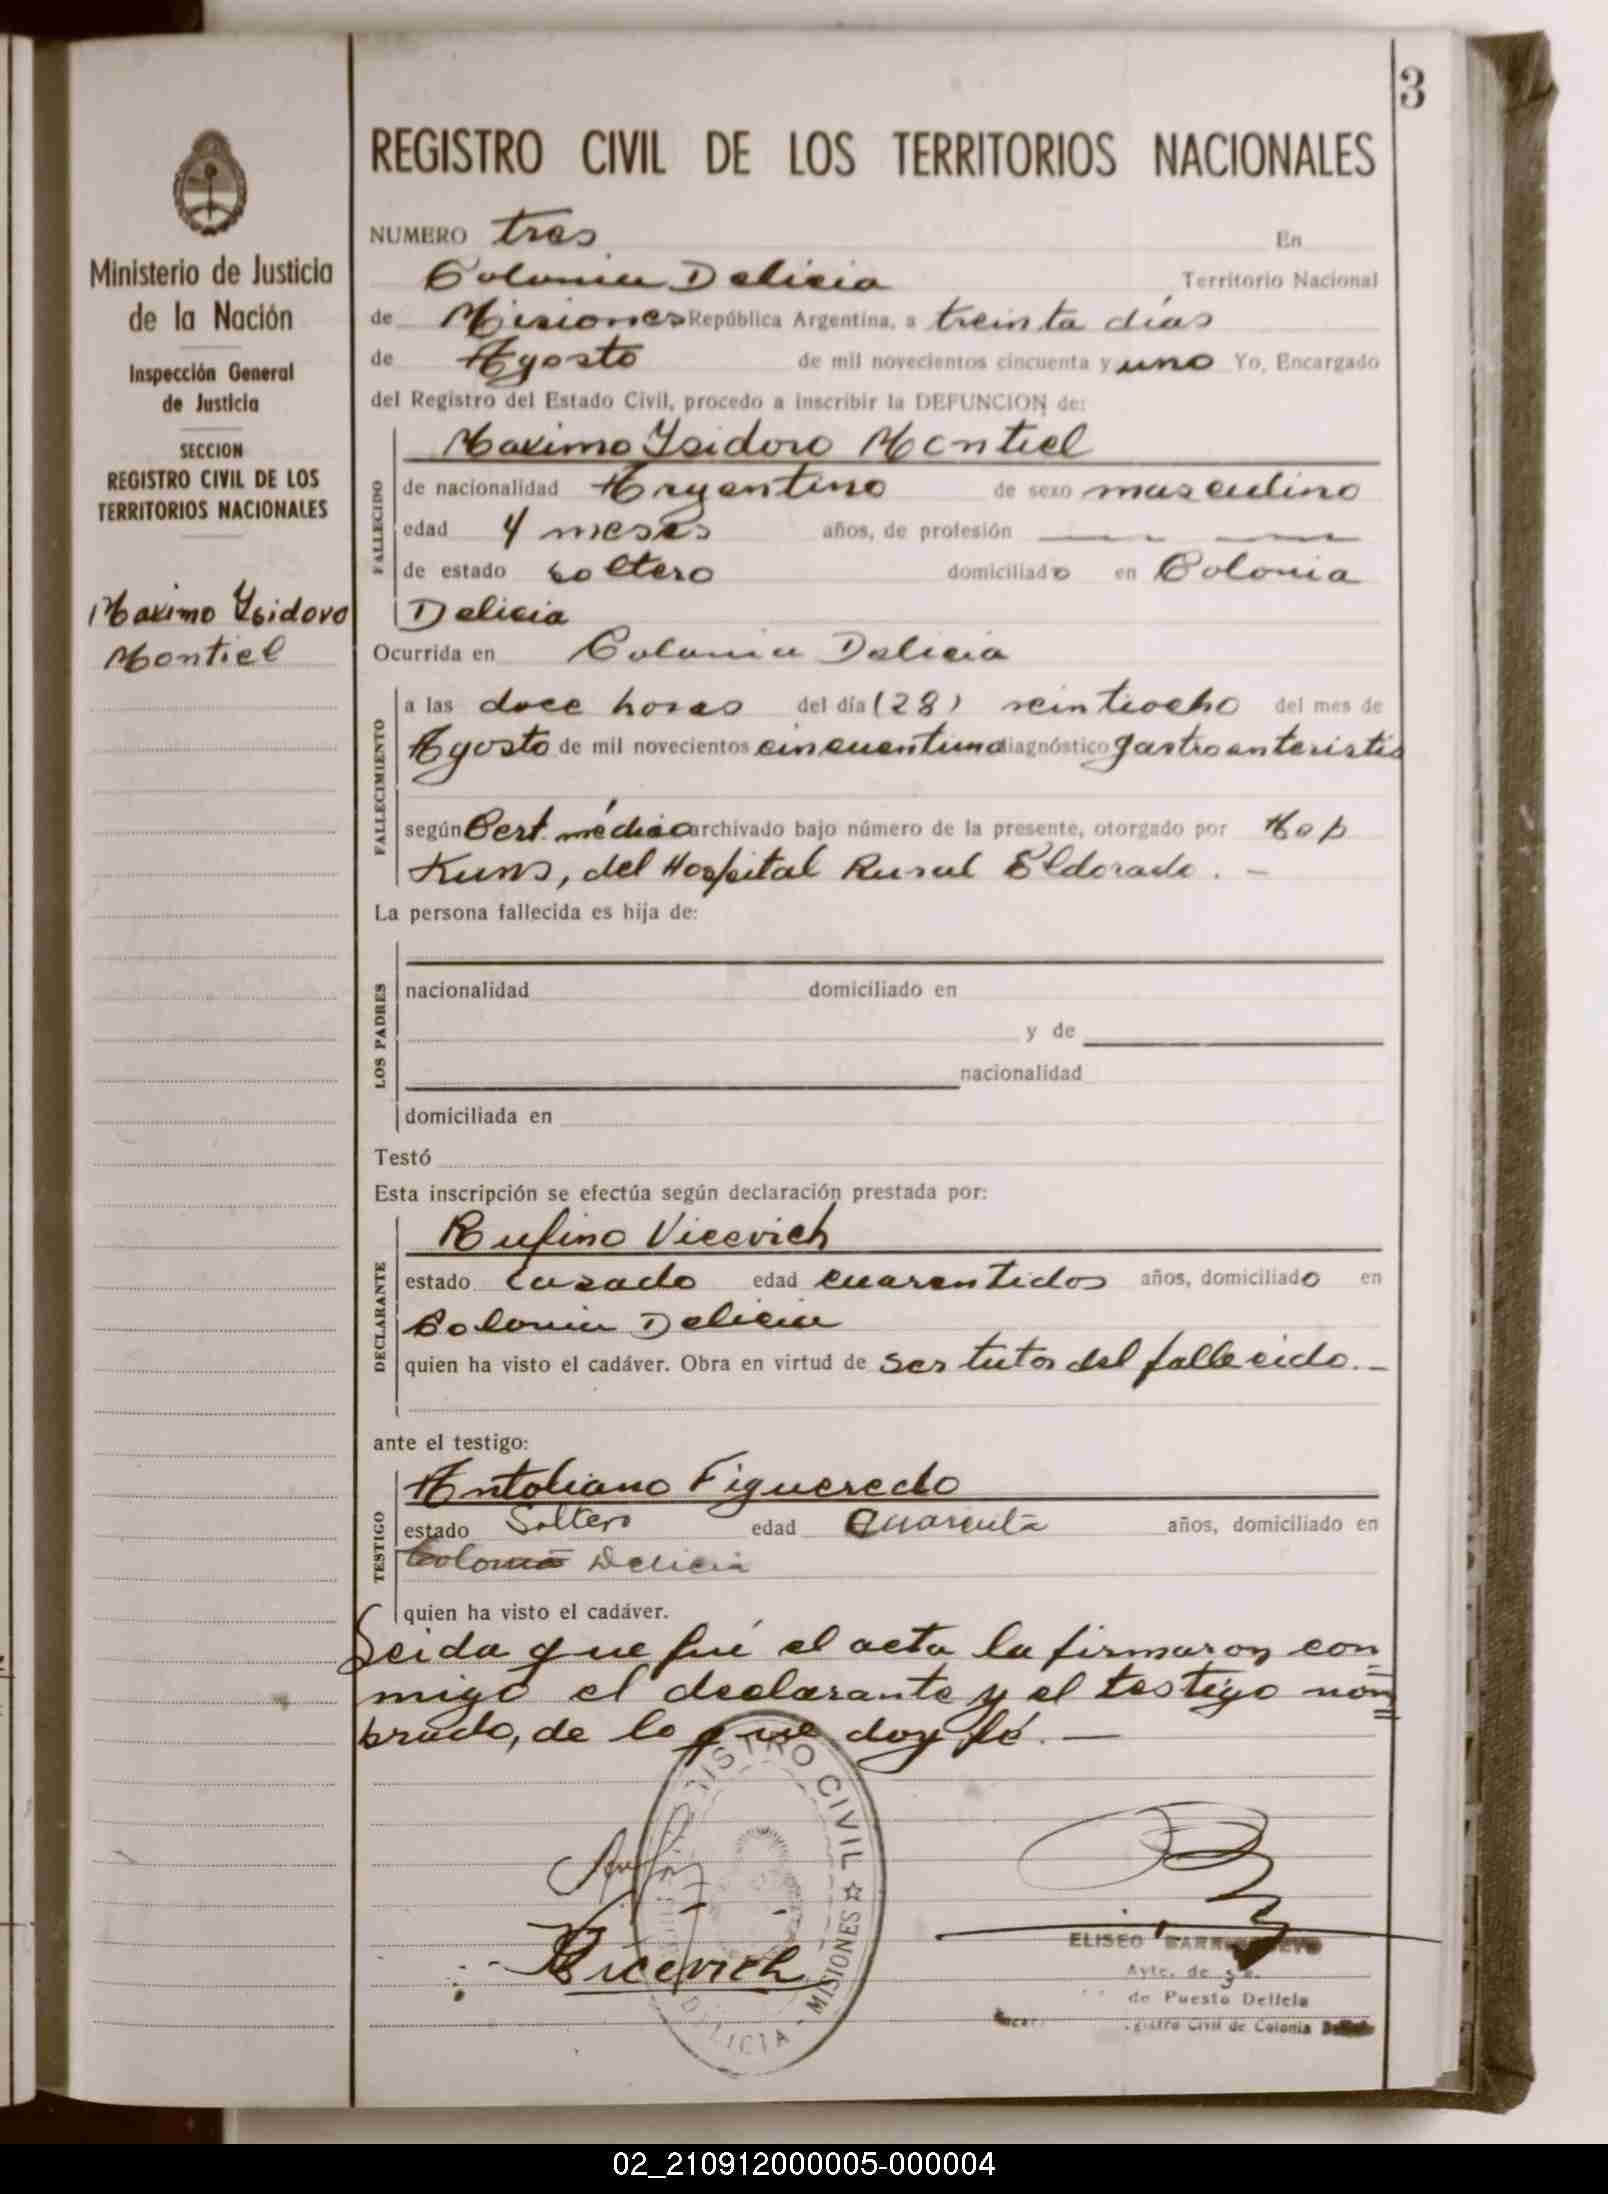 3
REGISTRO CIVIL DE LOS TERRITORIOS NACIONALES
Ministerio de Justicia
de la Nación
Inspección General
de Justicia
SECCION
REGISTRO CIVIL DE LOS
TERRITORIOS NACIONALES
Maximo Ysidoro
Montiel
NUMERO tres En
Colonia Delicia Territorio Nacional
de Misiones República Argentina, a treinta días
de Agosto de mil novecientos cincuenta y uno Yo, Encargado
del Registro del Estado Civil, procedo a inscribir la DEFUNCION de:
FALLECIDO
Maximo Ysidoro Montiel
de nacionalidad Argentino de sexo masculino
edad 4 meses años, de profesión
de estado soltero domiciliado en Colonia
Delicia
Ocurrida en Colonia Delicia
FALLECIMIENTO
a las doce horas del día (28) veintiocho del mes de
Agosto de mil novecientos cincuentiuno diagnóstico gastroenteristis
según Cert. médico archivado bajo número de la presente, otorgado por
Kuns, del Hospital Rural Eldorado. -
La persona fallecida es hija de:
LOS PADRES
nacionalidad domiciliado en
y de
nacionalidad
domiciliada en
Testó
Esta inscripción se efectúa según declaración prestada por:
DECLARANTE
Rufino Vicevich
estado casado edad cuarentidos años, domiciliado en
Colonia Delicia
quien ha visto el cadáver. Obra en virtud de ser tutor del fallecido. -
ante el testigo:
TESTIGO
Antoliano Figueredo
estado Soltero edad Cuarenta años, domiciliado en
Colonia Delicia
quien ha visto el cadáver.
Leida que fué el acta la firmaron con
migo el declarante y el testigo nom
brado, de lo que doy fé. -
REGISTRO CIVIL ☆ MISIONES - DELICIA
Vicevich
ELISEO
Ayte. de 3ª.
de Puesto Delicia
Registro Civil de Colonia
02_210912000005-000004